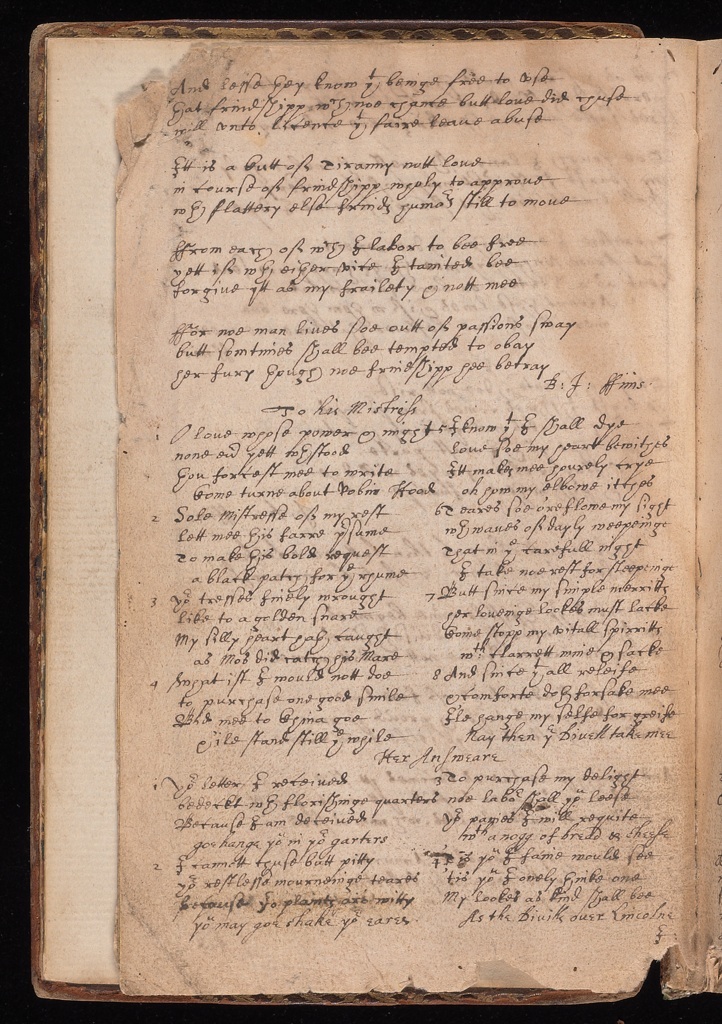 And lesse they know yt beinge free to vse
that frindshipp wch noe chance butt love did chuse
will vnto licence yt faire leave abuse
Itt is a butt off Tiranny nott love
in course off frindshipp wholy to approve
wth flattery else frinds humrs still to move
ffrom each off wch I labor to bee free
yett iff wth either vice I tainted bee
forgive itt as my frailety & nott mee
ffor noe man lives soe outt off passions sway
butt somtimes shall bee tempted to obay
her fury though noe frindshipp hee betray
B: J: ffinis
To his Mistress
1 O love whose power & might
none ere yett wthstood
thou forcest mee to write
Come turne about Robin Hood
2 Sole Mistresse off my rest
lett mee this farre prsume
To make this bold request
a black patch for ye rhume
3 yor tresses finely wrought
like to a golden snare
My silly heart hath caught
as Mos did catch his Mare
4 What ist I would nott doe
to purchase one good smile
Bid mee to China goe
& ile stand still ye while
5 I know yt I shall dye
love soe my heart bewitches
Itt makes mee hourely crye
oh how my elbowe itches
6 Teares soe oreflowe my sight
wth waves off dayly weepeinge
That in ye carefull night
I take noe rest for sleepeinge
7 Butt since my simple merritts
her loveinge lookes must lacke
Come stopp my vitall spirritts
wth Clarrett wine & sacke
8 And since yt all releife
& comforte doth forsake mee
Ile hange my selfe for greife
Nay then ye Divell take mee
Her Answeare
1 Yor letter I received
bedeckt wth florishinge quarters
Because I am deceived
goe hange yow in yor garters
2 I cannott chuse butt pitty
yor restlesse mourneinge teares
because yor plaints are witty
yow may goe shake yor eares
3 To purchase my delight
noe labor shall yow leese
yor paines I will requite
wth a nogg of bread & cheese
4 Tis yow I faine would see
tis yow I onely thinke one
My lookes as kind shall bee
As the Divills over Lincolne
I